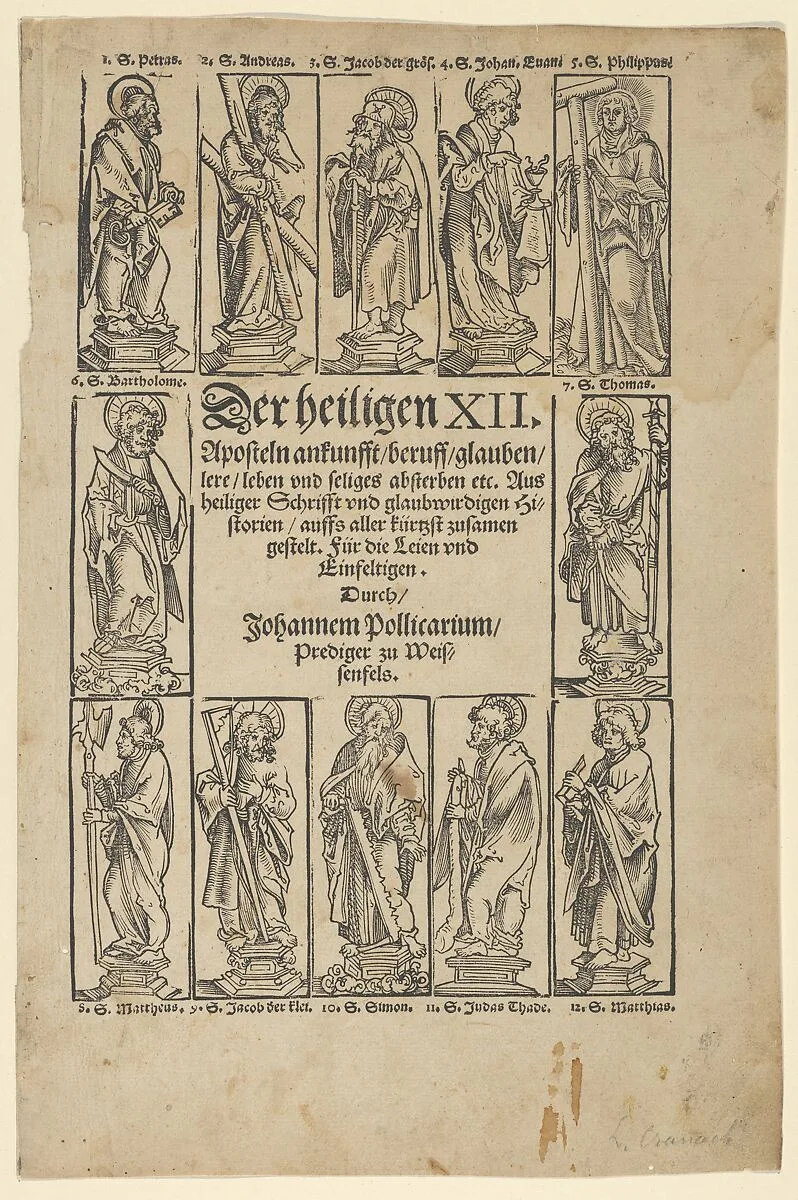 1. S. Petrus. 2. S. Andreas. 3. S. Jacob der grös. 4. S. Johan. Euan: 5. S. Philippus:
6. S. Bartholome. 7. S. Thomas.
Der heiligen XII.
Aposteln ankunfft/beruff/glauben/
lere/leben vnd seliges absterben etc. Aus
heiliger Schrifft vnd glaubwirdigen Hi-
storien/auffs aller kürtzst zusamen
gestelt. Für die Leien vnd
Einfeltigen.
Durch/
Johannem Pollicarium/
Prediger zu Weis-
senfels.
8. S. Mattheus. 9. S. Jacob der klei. 10. S. Simon. 11. S. Judas Thade. 12. S. Matthias.
L. Cranach